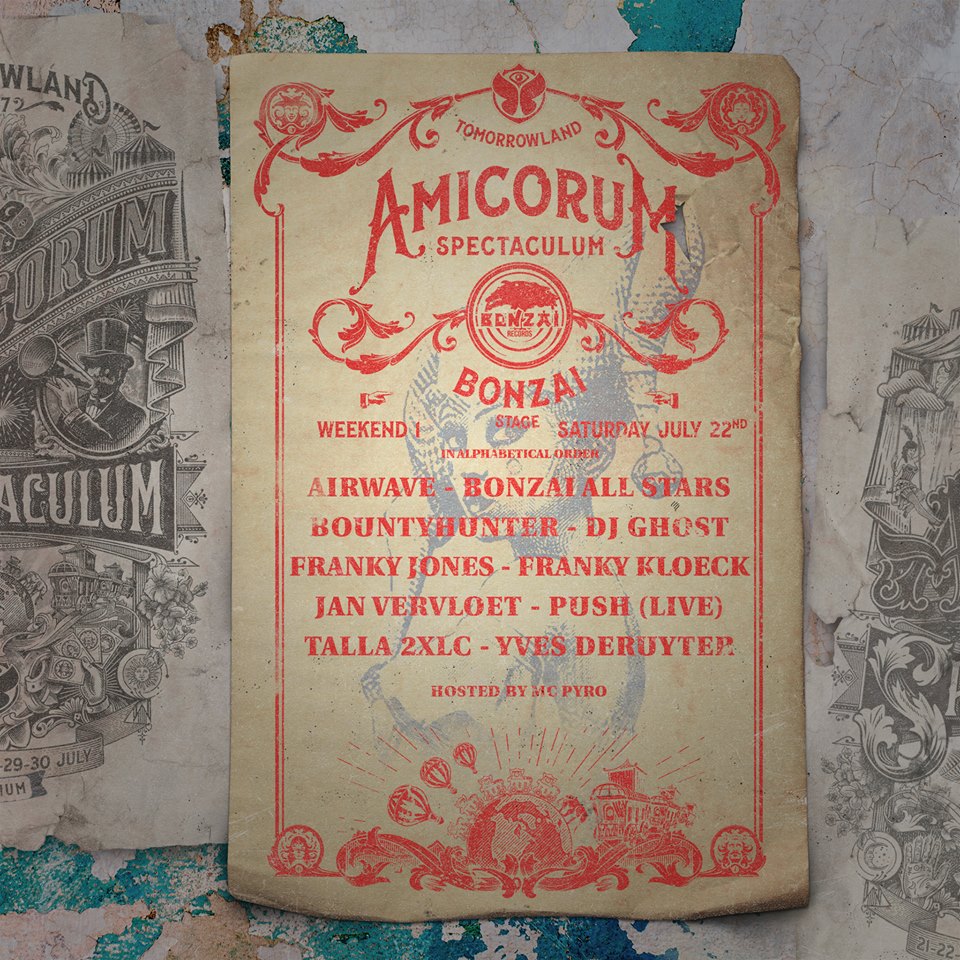 TOMORROWLAND
AMICORUM
SPECTACULUM
BONZAI
RECORDS
BONZAI
STAGE
WEEKEND 1 SATURDAY JULY 22ND
IN ALPHABETICAL ORDER
AIRWAVE - BONZAI ALL STARS
BOUNTYHUNTER - DJ GHOST
FRANKY JONES - FRANKY KLOECK
JAN VERVLOET - PUSH (LIVE)
TALLA 2XLC - YVES DERUYTER
HOSTED BY MC PYRO
OWLAND
ORUM
ACULUM
-29-30 JULY
IUM
21-22-